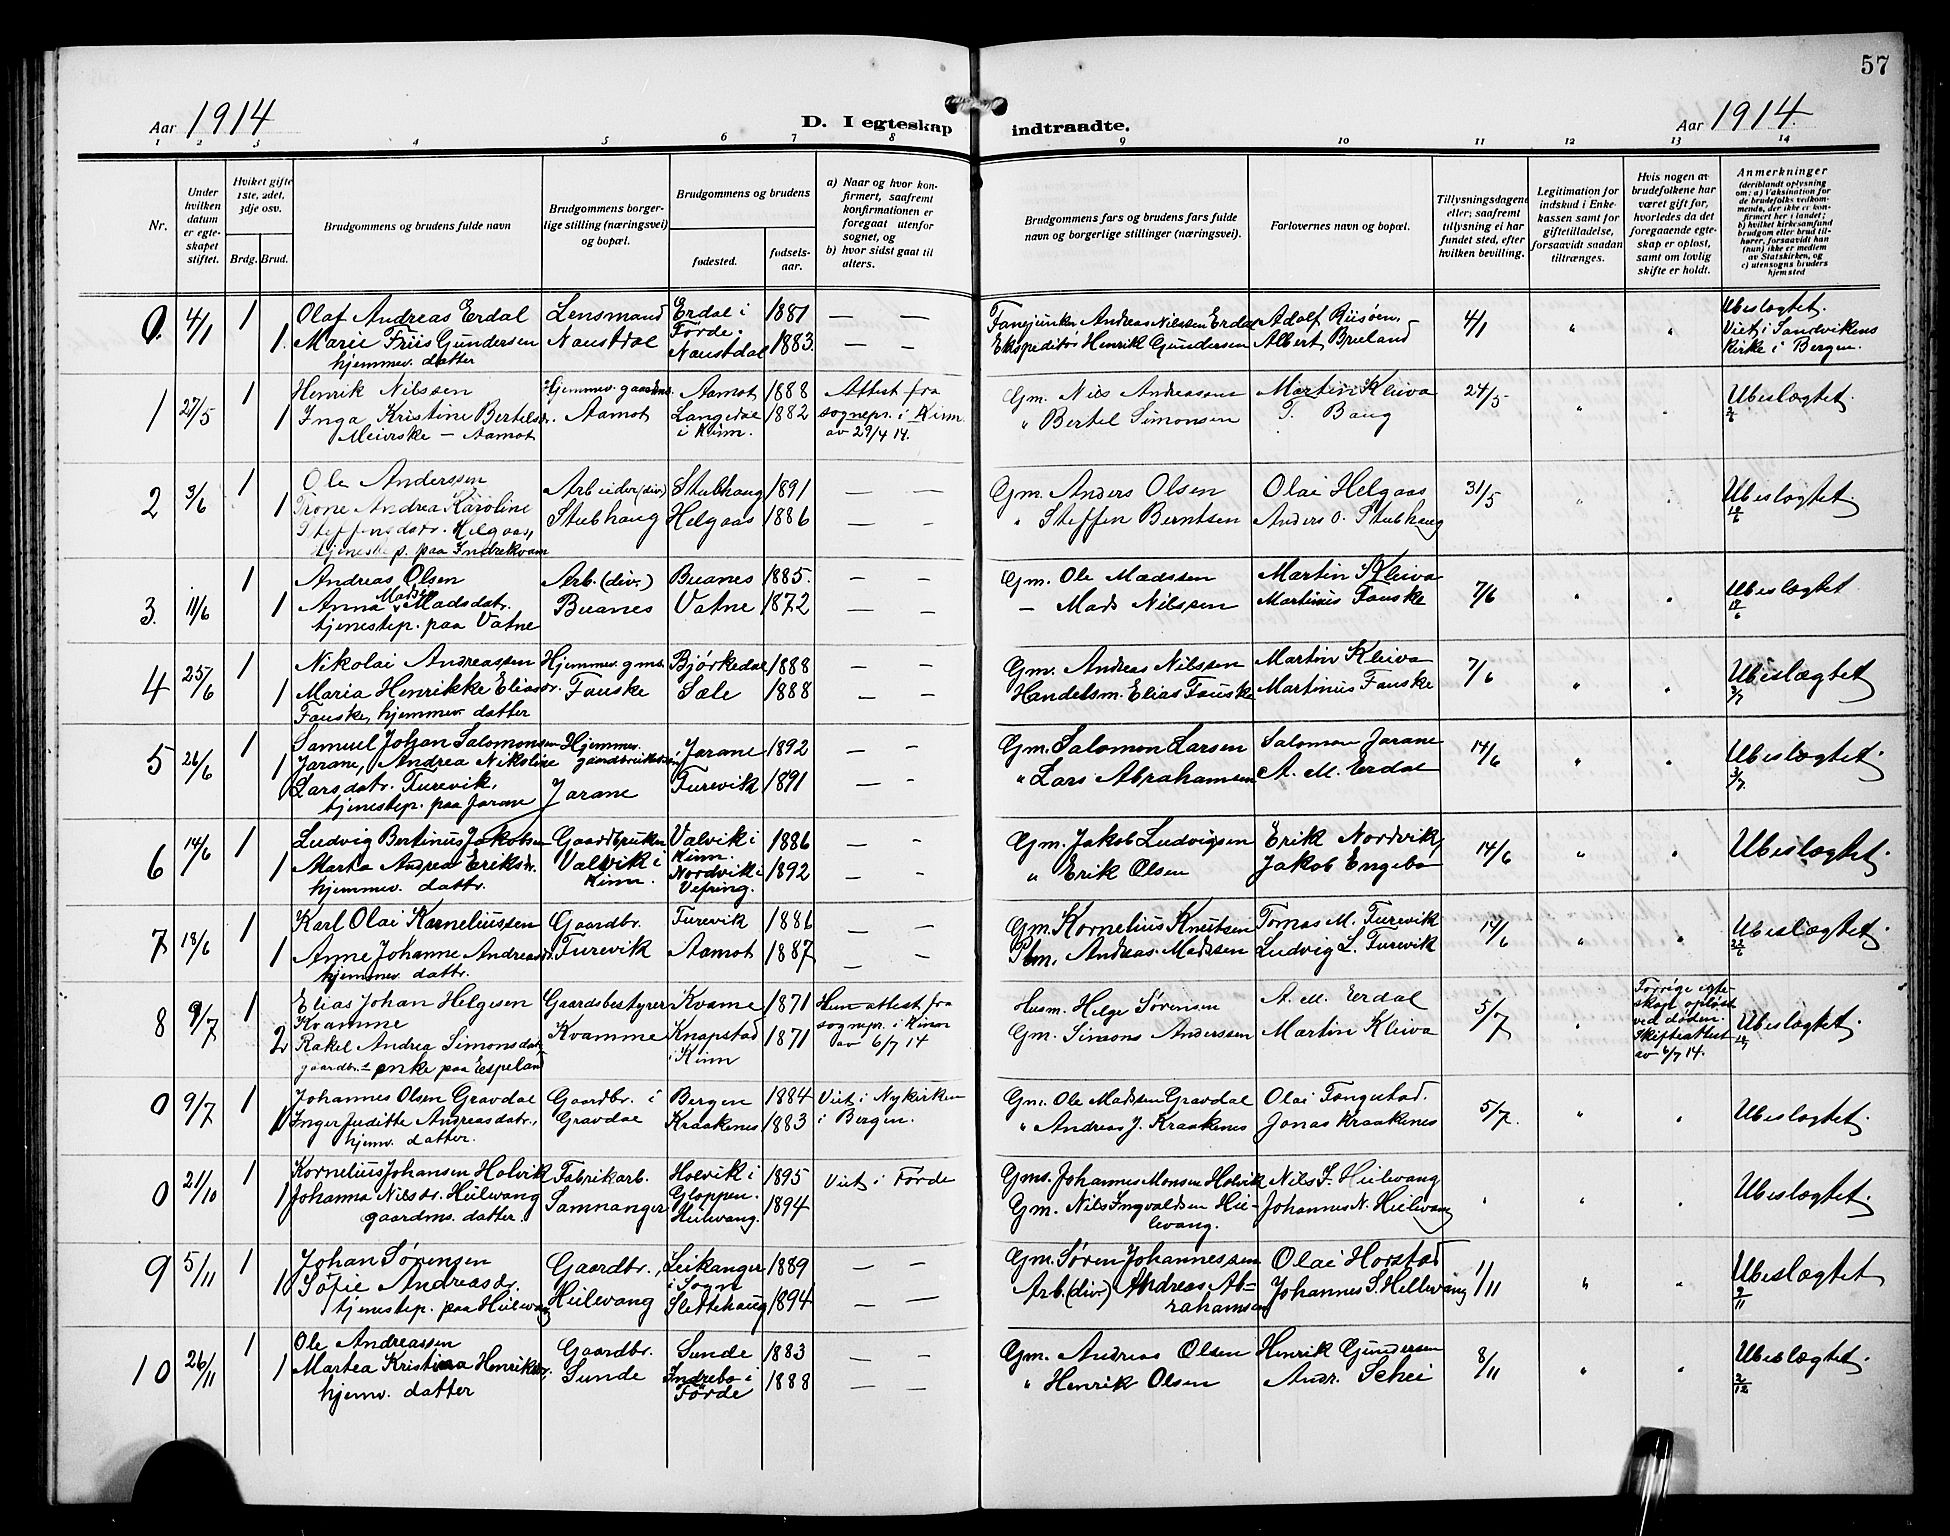 57
Aar 1914
D. I egteskap indtraadte.
Aar 1914.
1 2 3 4 5 6 7 8 9 10 11 12 13 14
Nr.
Under hvilken datum er egteskapet stiftet.
Hviket gifte 1ste, 2det, 3dje osv.
Brdg. Brud.
Brudgommens og brudens fulde navn
Brudgommens borgerlige stilling (næringsvei) og bopæl.
Brudgommens og brudens
fødested.
fødselsaar.
a) Naar og hvor konfirmert, saafremt konfirmationen er foregaat utenfor sognet, og
b) hvor sidst gaat til alters.
Brudgommens fars og brudens fars fulde navn og borgerlige stillinger (næringsvei).
Forlovernes navn og bopæl.
Tillysningsdagene eller, saafremt tillysning ei har fundet sted, efter hvilken bevilling.
Legitimation for indskud i Enkekassen samt for giftetilladelse, forsaavidt saadan tiltrænges.
Hvis nogen av brudefolkene har været gift før, hvorledes da det foregaaende egteskap er opløst, samt om lovlig skifte er holdt.
Anmerkninger
(deriblandt oplysning om: a) Vaksination for de brudefolks vedkommende, der ikke er konfirmert her i landet; b) hvilket kirkesamfund brudgom eller brud tilhører, forsaavidt han (hun) ikke er medlem av Statskirken, og c) utensogns bruders hjemsted
0. 4/1 1 Olaf Andreas Erdal Lensmand Erdal i Førde. 1881 — — Fanejunker Andreas Nilssen Erdal Adolf Riisøen 4/1 " " Ubeslægtet.
1. Marie Friis Gundersen Naustdal Naustdal 1883. — — Ekspeditør Henrik Gundersen Albert Bruland Viet i Sandvikens
hjemmev. datter kirke i Bergen.
1 27/5 1 Henrik Nilssen Hjemmev. gaardms. Aamot 1888 Attest fra Gm. Nils Andreassen Martin Kleiva 24/5 " " Ubeslægtet.
1 Inga Kristine Bertelsdr. Aamot Langedal 1882 sognepr. i Kinn " Bertel Simonsen T. Baug
Meierske – Aamot i Kinn. av 29/4 14.
2 3/6 1 Ole Anderssen Arbeider (div) Stubhaug 1891 — — Gm. Anders Olsen Olai Helgaas 31/5 " " Ubeslægtet
1 Trone Andrea Karoline Stubhaug Helgaas 1886 — — " Steffen Berntsen Anders O. Stubhaug
Steffensdtr. Helgaas,
tjenestep. paa Indrekvam
3. 11/6 1 Andreas Olsen Arb. (div.) Buanes 1885. — — Gm. Ole Madssen Martin Kleiva 7/6 " " Ubeslægtet
1 Anna Madsdatr. Buanes Vatne 1872 — — – Mads Nilssen Martinus Fauske
tjenestep. paa Vatne
4 25/6 1 Nikolai Andreassen Hjemmev. gms. Bjørkedal 1888 — — Gm. Andreas Nilssen Martin Kleiva 7/6 " " Ubeslægtet
1 Maria Henrikke Eliasdr. Fauske Sæle 1888 — — Handelsm. Elias Fauske Martinus Fauske 3/7
Fauske, hjemmev. datter
5 26/6 1 Samuel Johan Salomonsen Hjemmev. Jarane 1892 — — Gm. Salomon Larsen Salomon Jarane 14/6 " " Ubeslægtet.
1 Jarane, Andrea Nikoline gaardbrukersøn, Furevik 1891 — — " Lars Abrahamsen A. M. Erdal 3/7.
Larsdatr. Furevik, Jarane
tjenestep. paa Jarane
6 14/6 1 Ludvig Bertinus Jakobsen Gaardbruker Valvik i Kinn. 1886 — — Gm. Jakob Ludvigsen Erik Nordvik 14/6 " " Ubeslægtet.
1 Marta Andrea Eriksdr. Valvik i Kinn. Nordvik i Vefring. 1892 — — " Erik Olsen Jakob Engebø
hjemmev. dattr.
7 18/6 1 Karl Olai Korneliussen Gaardbr. Furevik 1886 — — Gm. Kornelius Knutsen Tomas M. Furevik 14/6 " " Ubeslægtet.
1 Anne Johanne Andreasdr. Furevik Aamot 1887 — — Andreas Madssen Ludvig L. Furevik
hjemmev. dattr.
8 9/7 1 Elias Johan Helgesen Gaardsbestyrer Kvame 1871 Hun attest fra Husm. Helge Sørensen A. M. Erdal 5/7 " Forrige egteskap opløst Ubeslægtet.
2 Kvamme Kvamme Knapstad i Kinn 1871 sognepr. i Kinn Gm. Simons Anderssen Martin Kleiva ved døden.
Rakel Andrea Simonsdatr. av 6/7 14 Skifteattest
enke paa Espeland av 6/7 14.
0 9/7 1 Johannes Olsen Gravdal Gaardbr. i Bergen 1884 Viet i Nykirken Gm. Ole Madssen Gravdal Olai Tongestad. 5/7. " " Ubeslægtet.
1 Inger Juditte Andreasdatr. Gravdal Kraakenes 1883 i Bergen. " Andreas J. Kraakenes Jonas Kraakenes
hjemv. datter.
0 21/10 1 Kornelius Johansen Holvik Fabrikarb. Holvik i Gloppen. 1895 Viet i Førde Gms. Johannes Monsen Holvik Nils I. Hielvang " " " Ubeslægtet.
1 Johanna Nilsdr. Hielvang Samnanger Hielvang. 1894 Gm. Nils Ingvaldsen Hielvang. Johannes N. Hielvang
gaardms. datter.
9 5/11 1 Johan Sørensen Gaardbr., Leikanger i Sogn 1889 — — Gm. Søren Johannessen Olai Horstad 1/11 " " Ubeslægtet
1 Sofie Andreasdr. Hielvang Slettehaug 1894 — — Arb. (div.) Andreas Abrahamsen Johannes S. Hellevang 9/11
tjenestep. paa Hielvang
10 26/11 1 Ole Andreassen Gaardbr. Sunde 1883 — — Gm. Andreas Olsen Henrik Gundersen 8/11 " " Ubeslægtet.
1 Martea Kristina Henriksdr. Sunde Indrebø i Førde 1888 — — " Henrik Olsen Andr. Schei 2/12
hjemv. datter